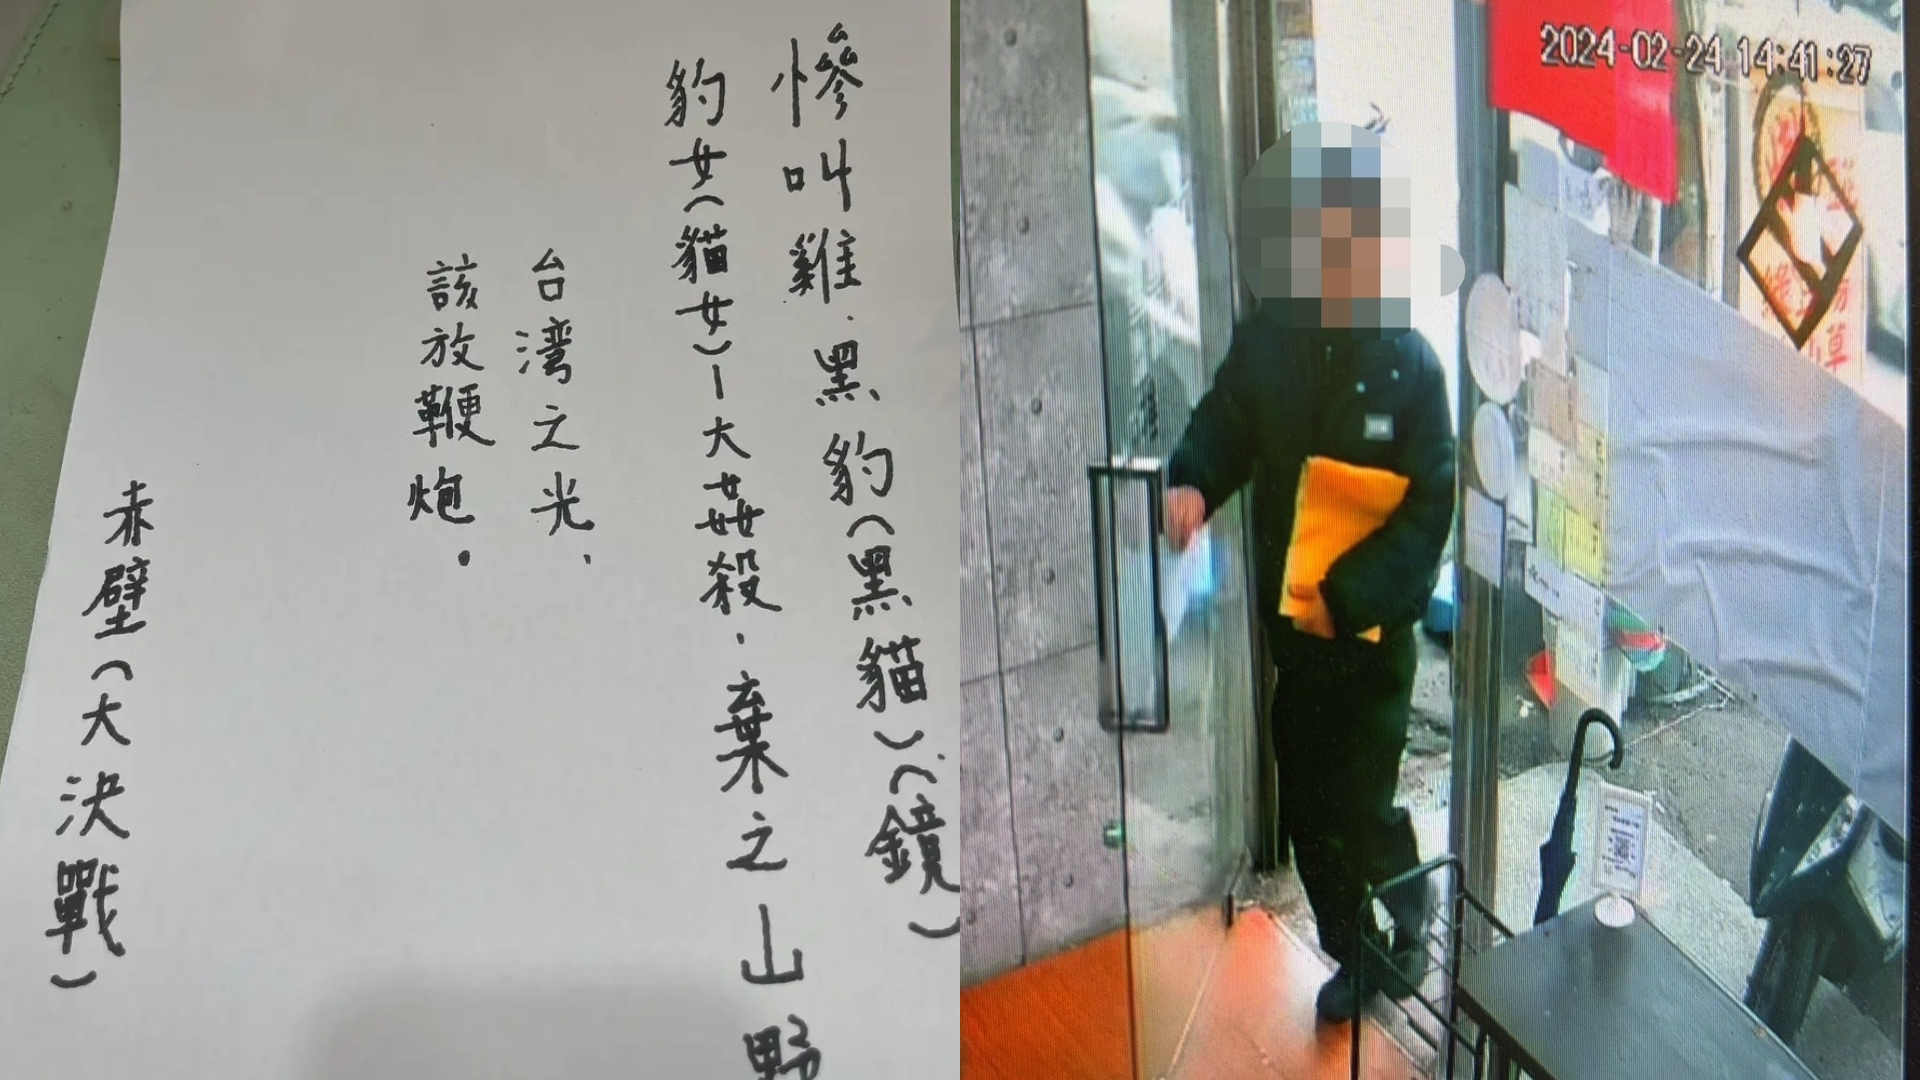 慘叫雞.黑豹(黑貓)(鏡)
豹女(貓女)-大姦殺.棄之山野
台湾之光、
該放鞭炮。
赤壁(大決戰)
2024-02-24 14:41:27